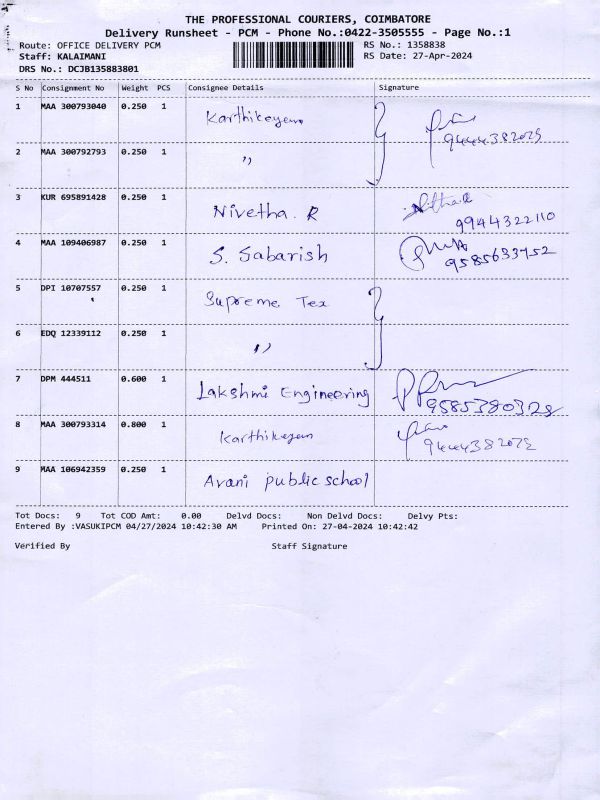 THE PROFESSIONAL COURIERS, COIMBATORE
Delivery Runsheet - PCM - Phone No.:0422-3505555 - Page No.:1
Route: OFFICE DELIVERY PCM RS No.: 1358838
Staff: KALAIMANI RS Date: 27-Apr-2024
DRS No.: DCJB135883801
S No Consignment No Weight PCS Consignee Details Signature
1 MAA 300793040 0.250 1 Karthikeyan
2 MAA 300792793 0.250 1 ,,
3 KUR 695891428 0.250 1 Nivetha. R 9944322110
4 MAA 109406987 0.250 1 S. Sabarish 9585633752
5 DPI 10707557 0.250 1 Supreme Tex
6 EDQ 12339112 0.250 1 ,,
7 DPM 444511 0.600 1 Lakshmi Engineering 9585380328
8 MAA 300793314 0.800 1 Karthikeyan
9 MAA 106942359 0.250 1 Avani public school
Tot Docs: 9 Tot COD Amt: 0.00 Delvd Docs: Non Delvd Docs: Delvy Pts:
Entered By :VASUKIPCM 04/27/2024 10:42:30 AM Printed On: 27-04-2024 10:42:42
Verified By Staff Signature